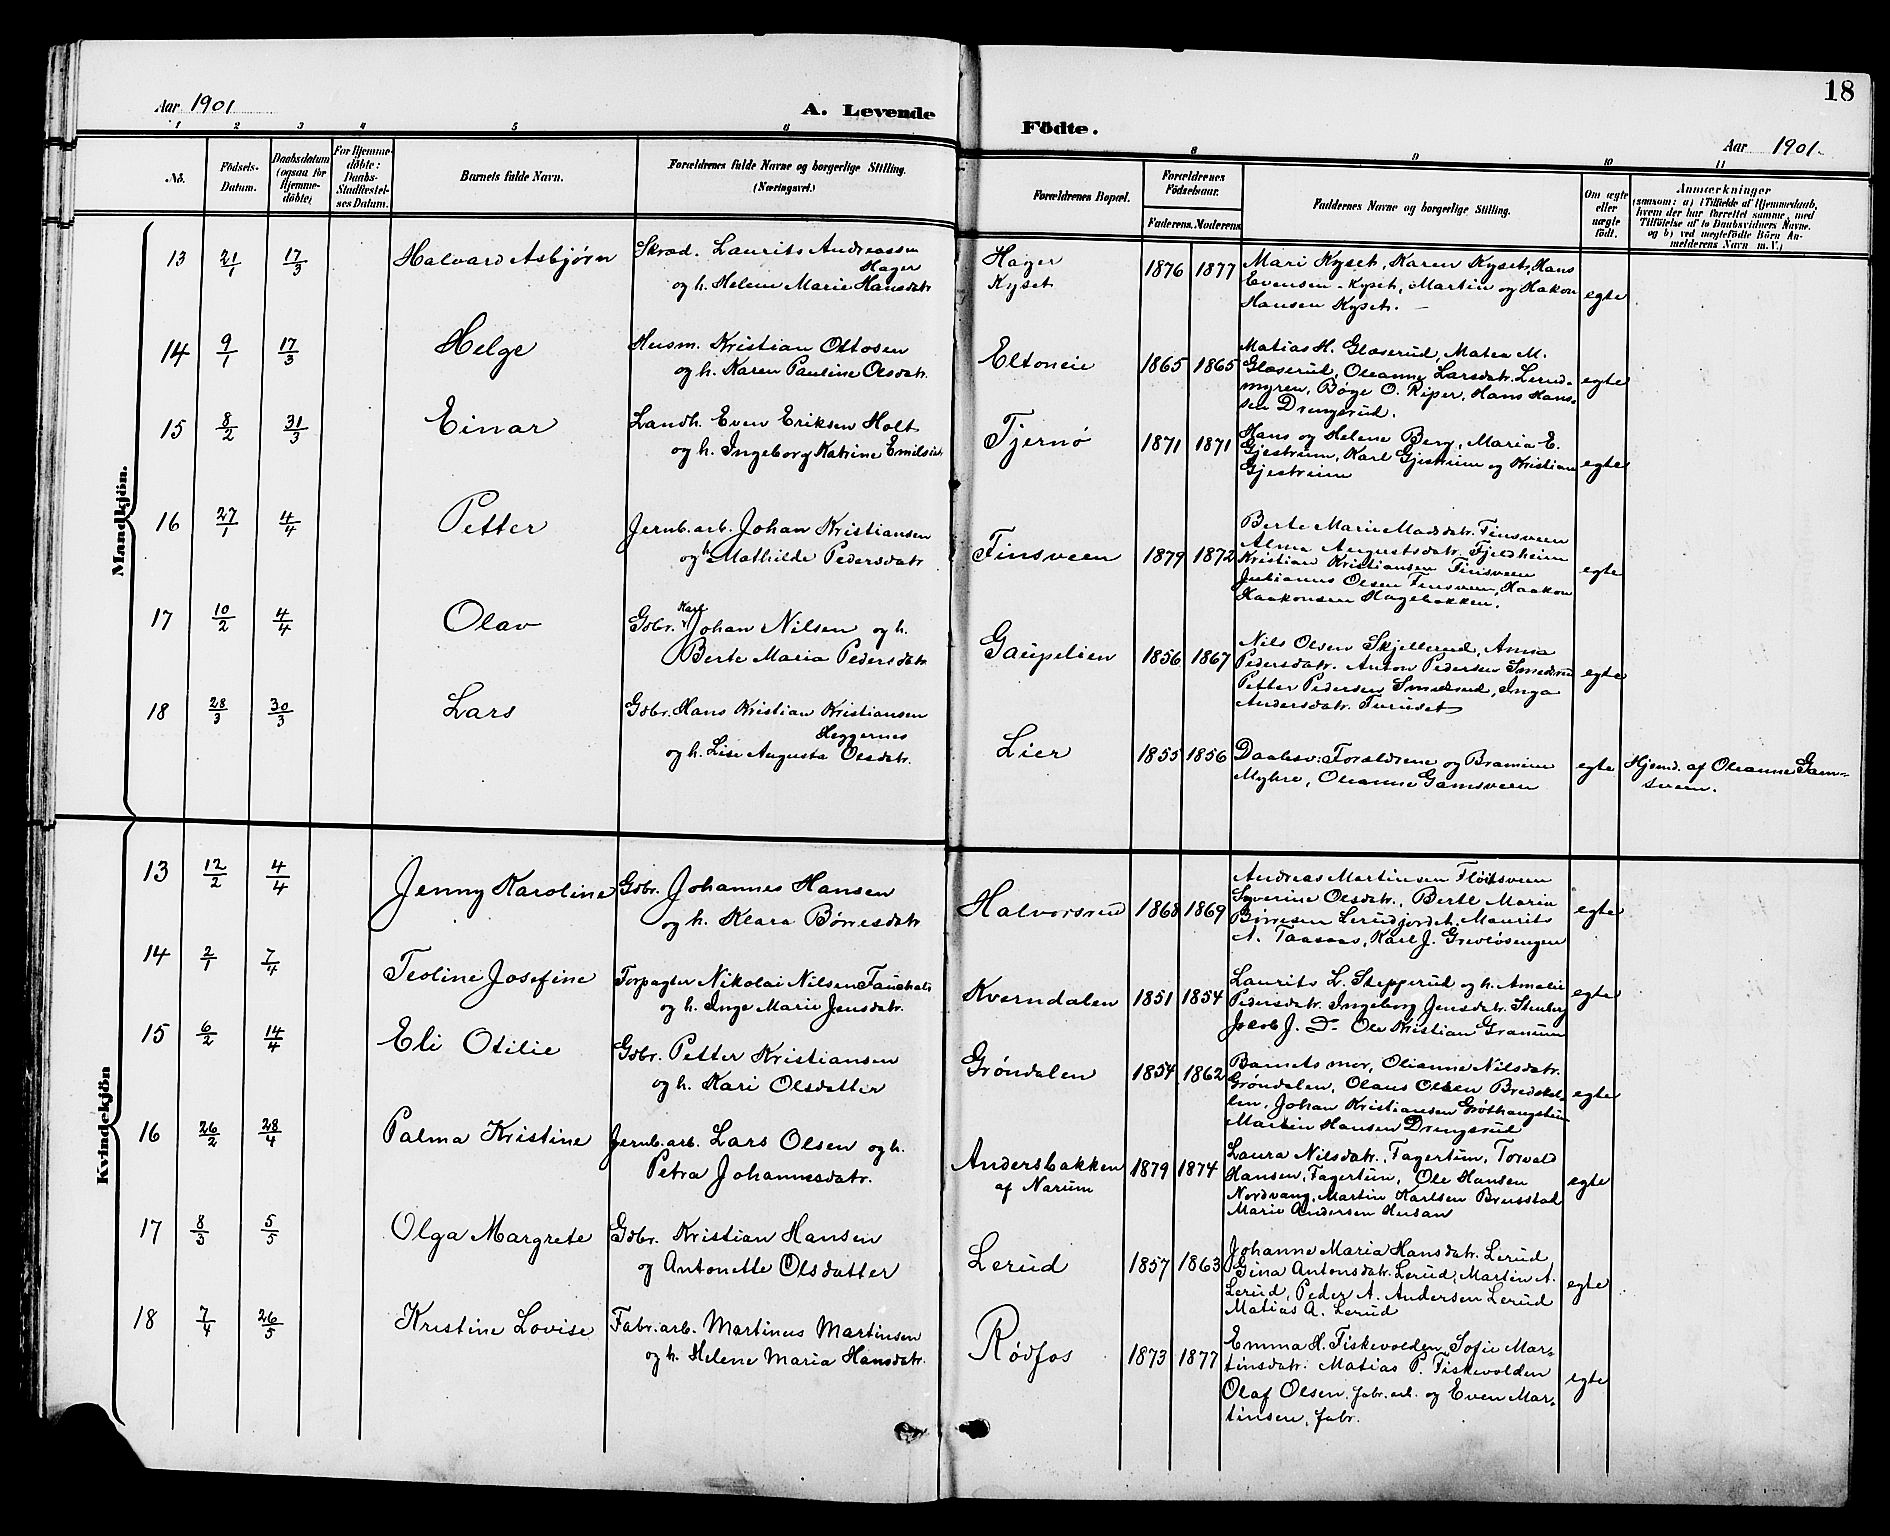 18
Aar 1901
A. Levende
Födte.
Aar 1901.
1 2 3 4 5 6 8 9 10 11
No.
Födsels-
Datum.
Daabsdatum
(ogsaa for
Hjemme-
döbte)
For Hjemme-
döbte:
Daabs-
Stadfestel-
ses Datum.
Barnets fulde Navn.
Forældrenes fulde Navne og borgerlige Stilling.
(Næringsvei.)
Forældrenes Bopæl.
Forældrenes
Födselsaar.
Faderens. Moderens.
Faddernes Navne og borgerlige Stilling.
Om ægte
eller
uægte
født.
Anmærkninger
(saasom: a) i Tilfælde af Hjemmedaab,
hvem der har forrettet samme, med
Tilföielse af to Daabsvidners Navne.
og b) ved uægtefödte Börn An-
melderens Navn m. V.)
Mandkjön.
13 21/1 17/3 Halvard Asbjørn
Skræd. Laurits Andreassen
Hager
og h. Helene Marie Hansdatr.
Hager
Kyset
1876 1877
Mari Kyset, Karen Kyset, Hans
Evensen Kyset, Martin og Hakon
Hansen Kyset.
egte
14 9/1 17/3 Helge
Husm. Kristian Ottosen
og h. Karen Pauline Olsdatr.
Eltoneie
1865 1865
Matias H. Glæserud, Matea M.
Glæserud, Oleanne Larsdatr. Lerud-
myren, Bøge O. Riper, Hans Han-
sen Drengsrud.
egte
15 8/2 31/3 Einar
Landh. Even Eriksen Holt
og h. Ingeborg Katrine Emilsdr.
Tjernø
1871 1871
Hans og Helene Berg, Maria E.
Gjestrum, Karl Gjestrum og Kristian
Gjestrum
egte
16 27/1 4/4 Petter
Jernb. arb. Johan Kristiansen
og h. Mathilde Pedersdatr.
Finsveen
1879 1872
Berte Marie Madsdatr. Finsveen
Alma Augustsdatr. Fjeldheim
Kristian Kristiansen Finsveen
Julianus Olsen Finsveen, Haakon
Haakonsen Hagebakken.
egte
17 10/2 4/4 Olav
Gbr. Karl Johan Nilsen og h.
Berte Maria Pedersdatr.
Gaupelien
1856 1867
Nils Olsen Skjellerud, Anna
Pedersdatr. Anton Pedersen Smedsrud
Petter Pedersen Smedsrud, Inga
Andersdatr. Furuset
egte
18 28/3 30/3 Lars
Gbr. Hans Kristian Kristiansen
Heggernes
og h. Lise Augusta Olsdatr.
Lier
1855 1856
Daabsv: Forældrene og Bramine
Myhre, Oleanne Gamsveen
egte
Hjemd. af Oleanne Gam-
sveen.
Kvindekjön
13 12/2 4/4 Jenny Karoline
Gbr. Johannes Hansen
og h. Klara Børresdatr.
Halvorsrud
1868 1869
Andreas Martinsen Fløitsveen
Syverine Olsdatr., Berte Maria
Børresen Lerudjordet. Maurits
A. Taasaas, Karl J. Grevløsengen
egte
14 2/1 7/4 Teoline Josefine
Forpagter Nikolai Nilsen Fauchald
og h. Inge Marie Jensdatr.
Kverndalen
1851 1854
Laurits L. Stepperud og h. Amalie
Pedersdatr. Ingeborg Jensdatr. Stenberg
Jacob J. Do. Ole Kristian Granum
egte
15 6/2 14/4 Eli Otilie
Gbr. Petter Kristiansen
og h. Kari Olsdatter
Grøndalen
1854 1862
Barnets mor, Olianne Nilsdatr.
Grøndalen, Olaus Olsen Bredskel-
len. Johan Kristiansen Grøthaugstuen
Martin Hansen Drengsrud
egte
16 26/2 28/4 Palma Kristine
Jernb. arb. Lars Olsen og h.
Petra Johannesdatr.
Andersbakken
af Narum
1879 1874
Laura Nilsdatr. Fagertun, Torvald
Hansen, Fagertun, Ole Hansen
Nordvang, Martin Karlsen Breisstad
Marie Andersen Husan
egte
17 8/3 5/5 Olga Margrete
Gbr. Kristian Hansen
og Antonette Olsdatter
Lerud
1857 1863
Johanne Maria Hansdatr. Lerud
Gina Antonsdatr. Lerud, Martin A.
Lerud, Peder A. Andersen Lerud
Matias A. Lerud
egte
18 7/4 26/5 Kristine Lovise
Fabr. arb. Martinus Martinsen
og h. Helene Maria Hansdatr.
Rødfos
1873 1877
Emma H. Fiskevolden, Sofie Mar-
tinsdatr. Matias P. Fiskevolden
Olaf Olsen, fabr. arb. og Even Mar-
tinsen, fabr.
egte